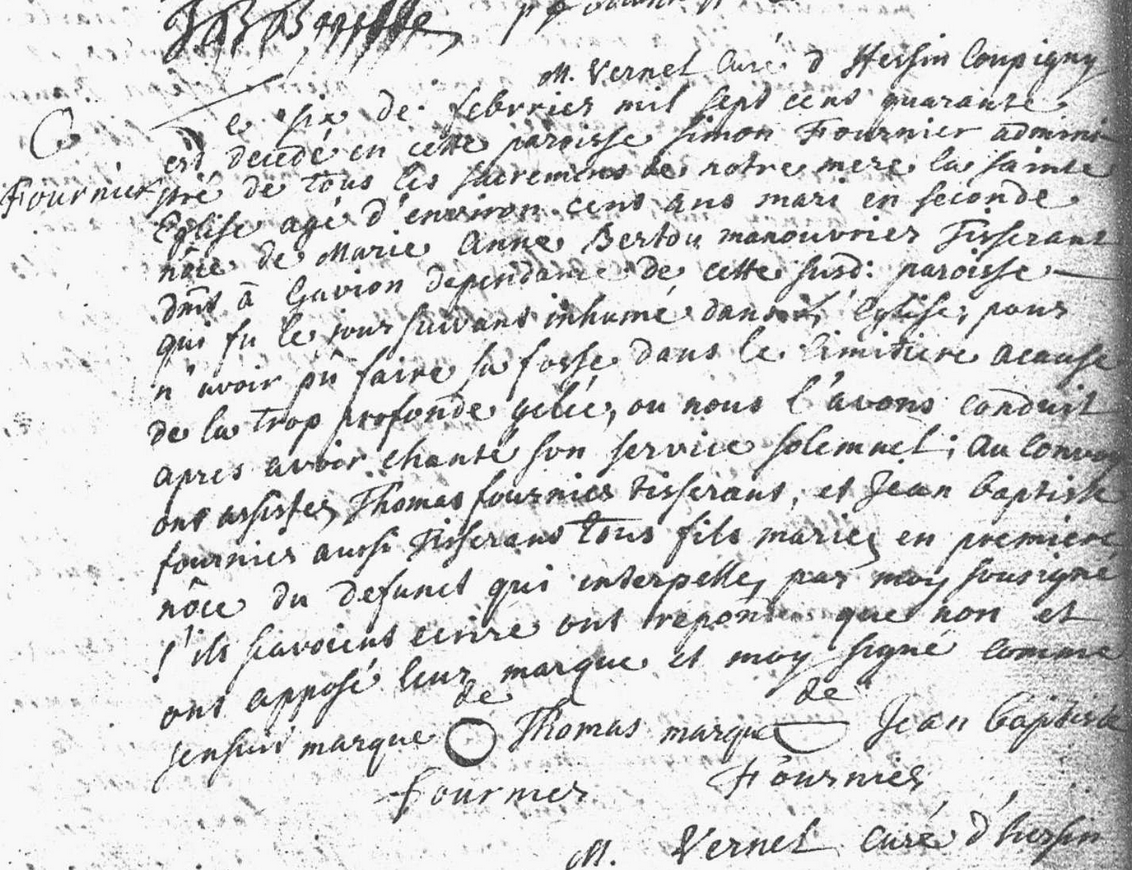 M. Vernel Curé d Hersin Coupigny
Le six de febvrier mil sept cens quarante
est decedé en cette paroisse simon Fournier admini
Fournier
stré de tous les sacremens de notre mere la sainte
Eglise agé d'environ cens ans mari en seconde
nôce de Marie Anne Bertou manouvrier Tisserant
dmt à Gavion dependance de cette susd: paroisse
qui fu le jour suivans inhumé dans l'Eglise, pour
n'avoir pû faire sa fosse dans le Cimitiere acause
de la trop profonde gelée, ou nous l'avons conduit
apres avoir chanté son service solemnel; au convoy
ont assistez Thomas fournier tisserant, et Jean baptiste
fournier aussi Tisserans tous fils mariez en premiere
nôce du defunct qui interpellez par moy sousigné
s'ils scavoient ecrire ont repondu que non et
ont apposé leur marque et moy signé comme
sensuit marque de Thomas marque de Jean baptiste
fournier Fournier
M. Vernel curé d'hersin